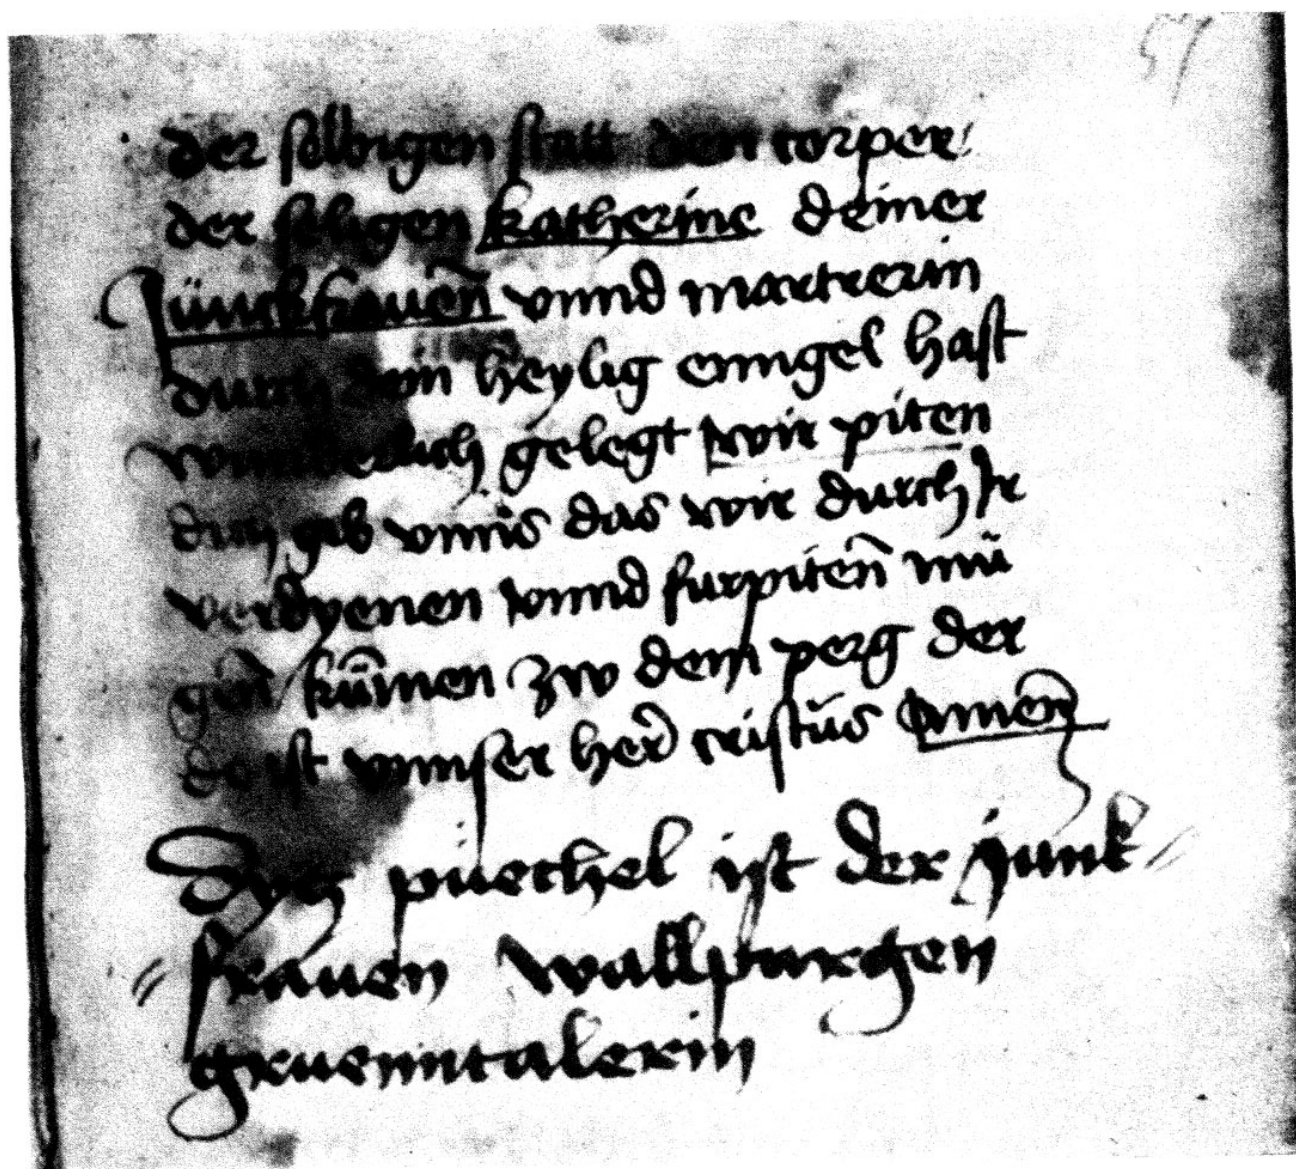 57
der selbigen statt den corper
der seligen katherine deiner
Jünckfrauen̄ vnnd martrerin
durch dein heylig enngel hast
wunderlich gelegt wir piten
dich gib vnns das wir durch Ir
verdyenen vnnd furpiten̄ mü
gen̄ kūmen zw dem perg der
do ist vnnser her̄ cristus Amen
Dyz püechel ist der junk //
// frauen wallpurgen
gruenntalerin